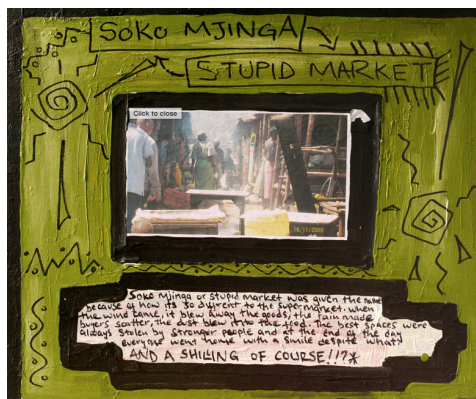 SOKO MJINGA
STUPID MARKET
Click to close
16/11/2003
Soko Mjinga or stupid market was given the name
because of how its so different to the supermarket. when
the wind came, it blew away the goods, the rain made
buyers scatter, the dust blew into the food. The best spaces were
always stolen by stronger people and at the end of the day
everyone went home with a smile despite what?
AND A SHILLING OF COURSE!!?*